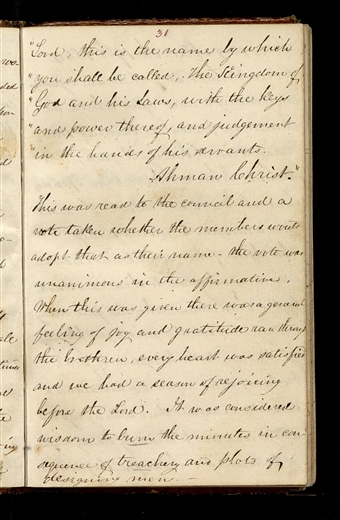 31
"Lord, this is the name by which
"you shall be called, The Kingdom of
"God and his Laws, with the Keys
"and power thereof, and judgement
"in the hands of his servants.
Ahman Christ."
This was read to the council and a
vote taken whether the members would
adopt that as their name - the vote was
unanimous in the affirmative.
When this was given there was a general
feeling of joy and gratitude ran through
the brethren, every heart was satisfied
and we had a season of rejoicing
before the Lord. It was considered
wisdom to burn the minutes in con-
sequence of treachery and plots of
designing men. -